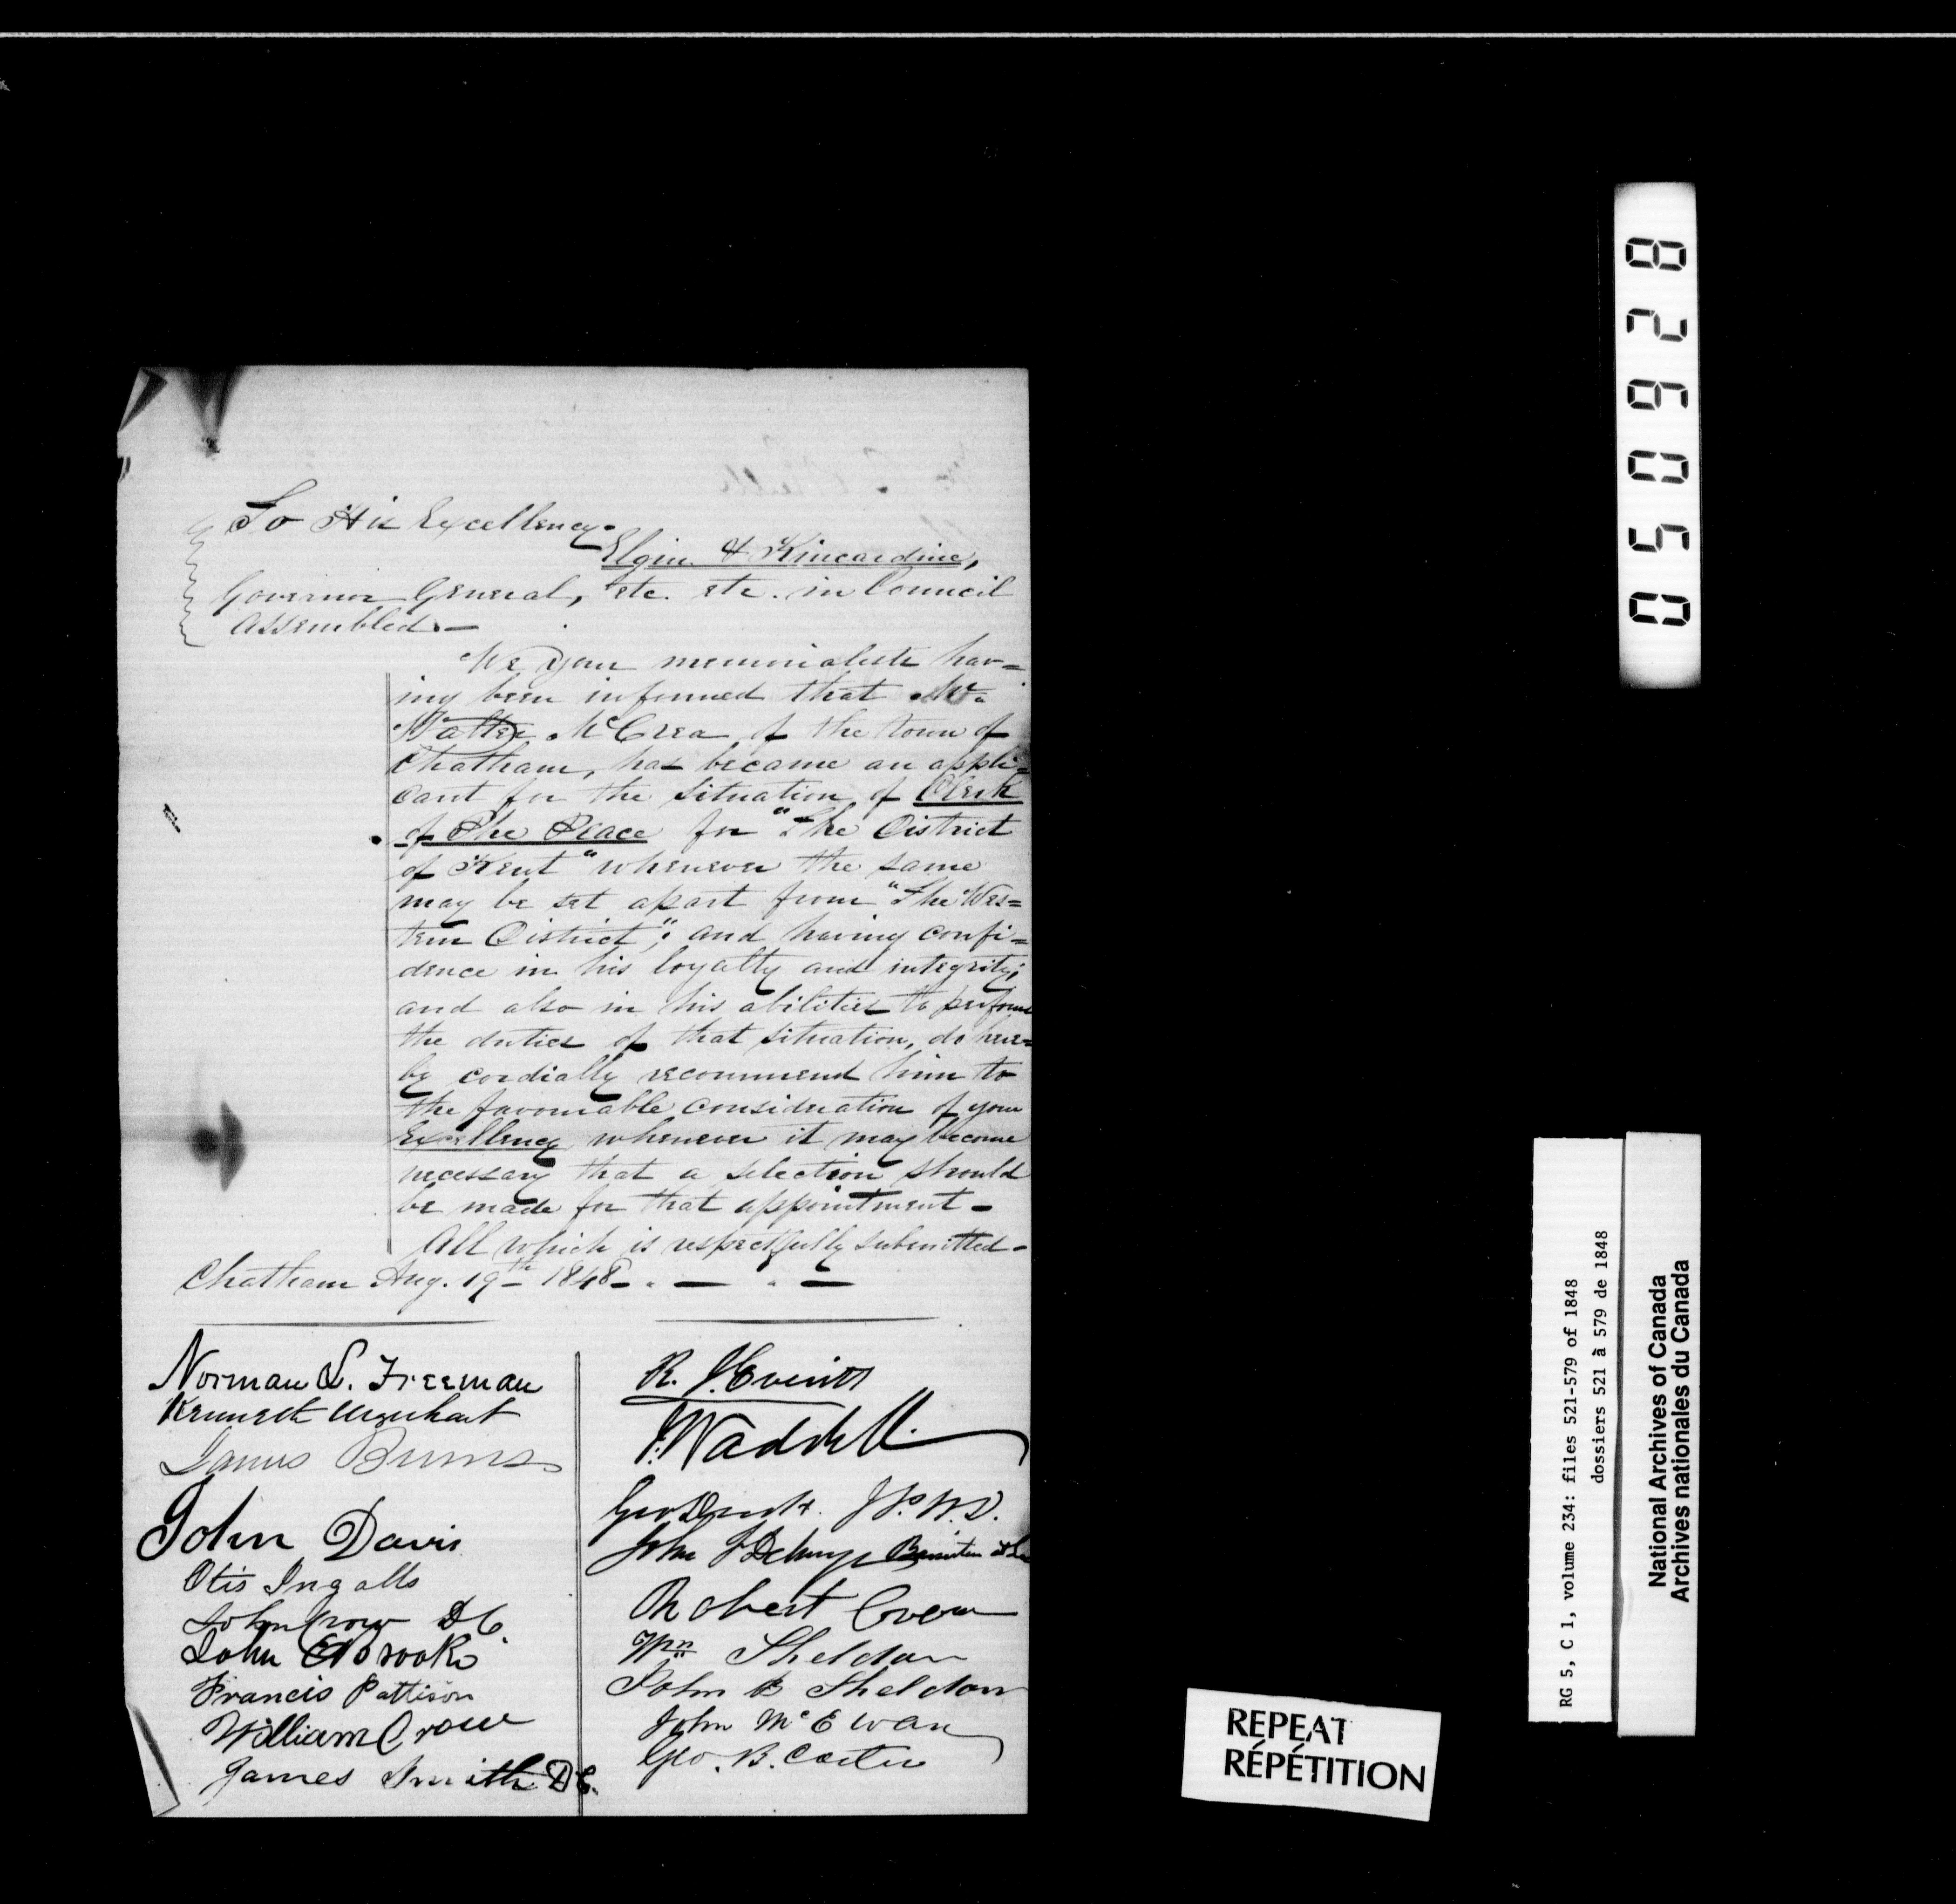 To His Excellency.
Elgin & Kincardine,
Governor General, etc. etc. in Council
Assembled. —
We your memorialists hav=
ing been informed that Mr.
Walter McCrea of the town of
Chatham, has became an appli=
cant for the situation of Clerk
of The Peace for "The District
of Kent" whenever the same
may be set apart from "The Wes=
tern District"; and having confi=
dence in his loyalty and integrity;
and also in his abilities to perform
the duties of that situation, do here=
by cordially recommend him to
the favourable consideration of your
Excellency whenever it may become
necessary that a selection should
be made for that appointment -
All which is respectfully submitted -
Chatham Aug. 19th 1848 - . — . —
Norman L. Freeman
Kenneth Urquhart
James Burns
John Davis
Otis Ingalls
John Crow D C.
John Brooks
Francis Pattison
William Crow
James Smith D C.
R.
J. Waddell.
Geo J.P. W.D.
John
Robert Crow
Wm Sheldon
John B Sheldon
John McEwan
Geo. B. Carter
050928
RG 5, C 1, volume 234: files 521-579 of 1848
dossiers 521 à 579 de 1848
National Archives of Canada
Archives nationales du Canada
REPEAT
RÉPÉTITION